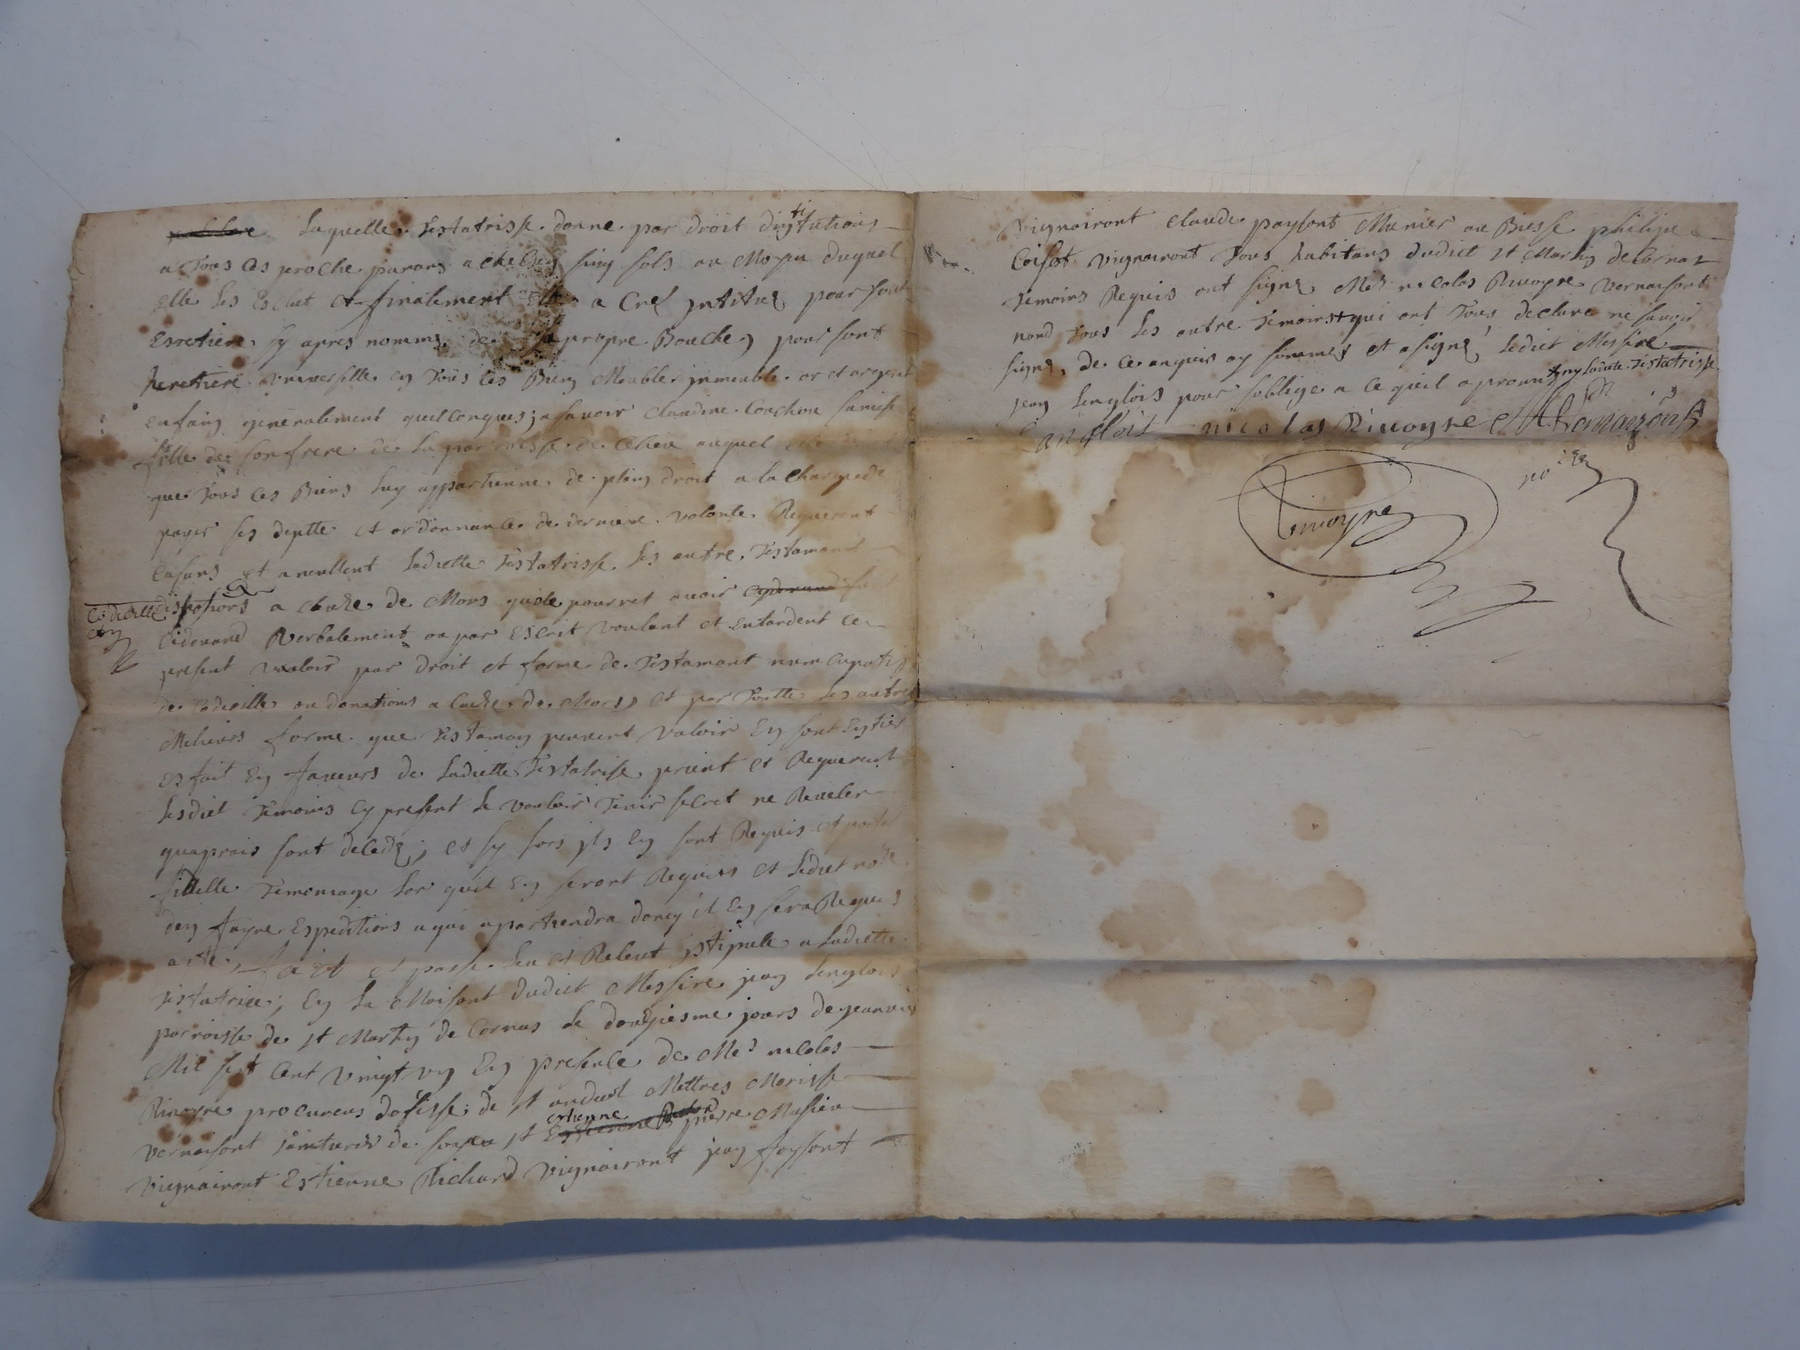 laquelle testatrisse donne par droit distitutions
a tous ces proche parans a chacung sinq sols au moyen duquel
elle les Esclut et finalement Elle a Creé jntitué pour sont
Esretiere sy apres nommé de sa propre Bouche pour sont
heretiere universelle en tous ces Biens Meubles jnmeuble or et argent
enfains generalement quelconques; a savoir claudine Cochon
fille de son frere de la parroisse de auquel elle veut
que tous ces Biens luy appartienne de plaing droit a la Charge de
payer ses deptte et ordonnance de derniere volante Requerent
Casans et anenllent ladictte testatrisse les autre testamant
codicille
et
dispositions a cause de Mors quele pourret avoir
cidevand verbalement ou par Escrit voulant et entandent ce
present valoir par droit et forme de testamant nuncupatif
de codicille ou donations a cause de Mors et par toutte les autres
Melieurs forme que testamang peuvent valoir Eng sont Eng tier
et fait Eng faveurs de ladictte testatrisse prient et Requerent
lesdict temoins cy present le vouloir tenir secret ne Reveler
quaprais sont decedz; et sy fors jls Eng sont Requis et porter
fidelle temoniage lor quil Eng seront Requis et ledict nore
deng fayre Espeditions a qui apartiendra doncq il Eng sera Requis
acte, faict et passé leu et Releut jstipule a ladictte
testatrice; Eng la Maisont dudict Messire jean lenglois
parroisse de st Marting de Cornas le douziesme jours de jeanvier
Mil sept cent vingt ung Eng presence de Me nicolas
Rivoyre procureus dofisse de st andeol Mettres Morisse
vernaisont de st estienne pierre Masieu
vignairont Estienne Richard vignairont jean foysont
vignairont claude paysont Munier au Besse philipe
Coisot vignairont tous habitans dudict st Marting de Cornaz
temoins Requis ont signé Me nicolas Rivoyre vernaisont
nond tous les autre temoins qui ont tous declare ne savoir
signé, de ce anquis ay sommes et a signé ledict Messire
ny ladicte testatrisse
jean lenglois pour soblige a ce quil aprouve
Langlois nicolas Rivoyre M Vernaizont
Rivoyre
nore